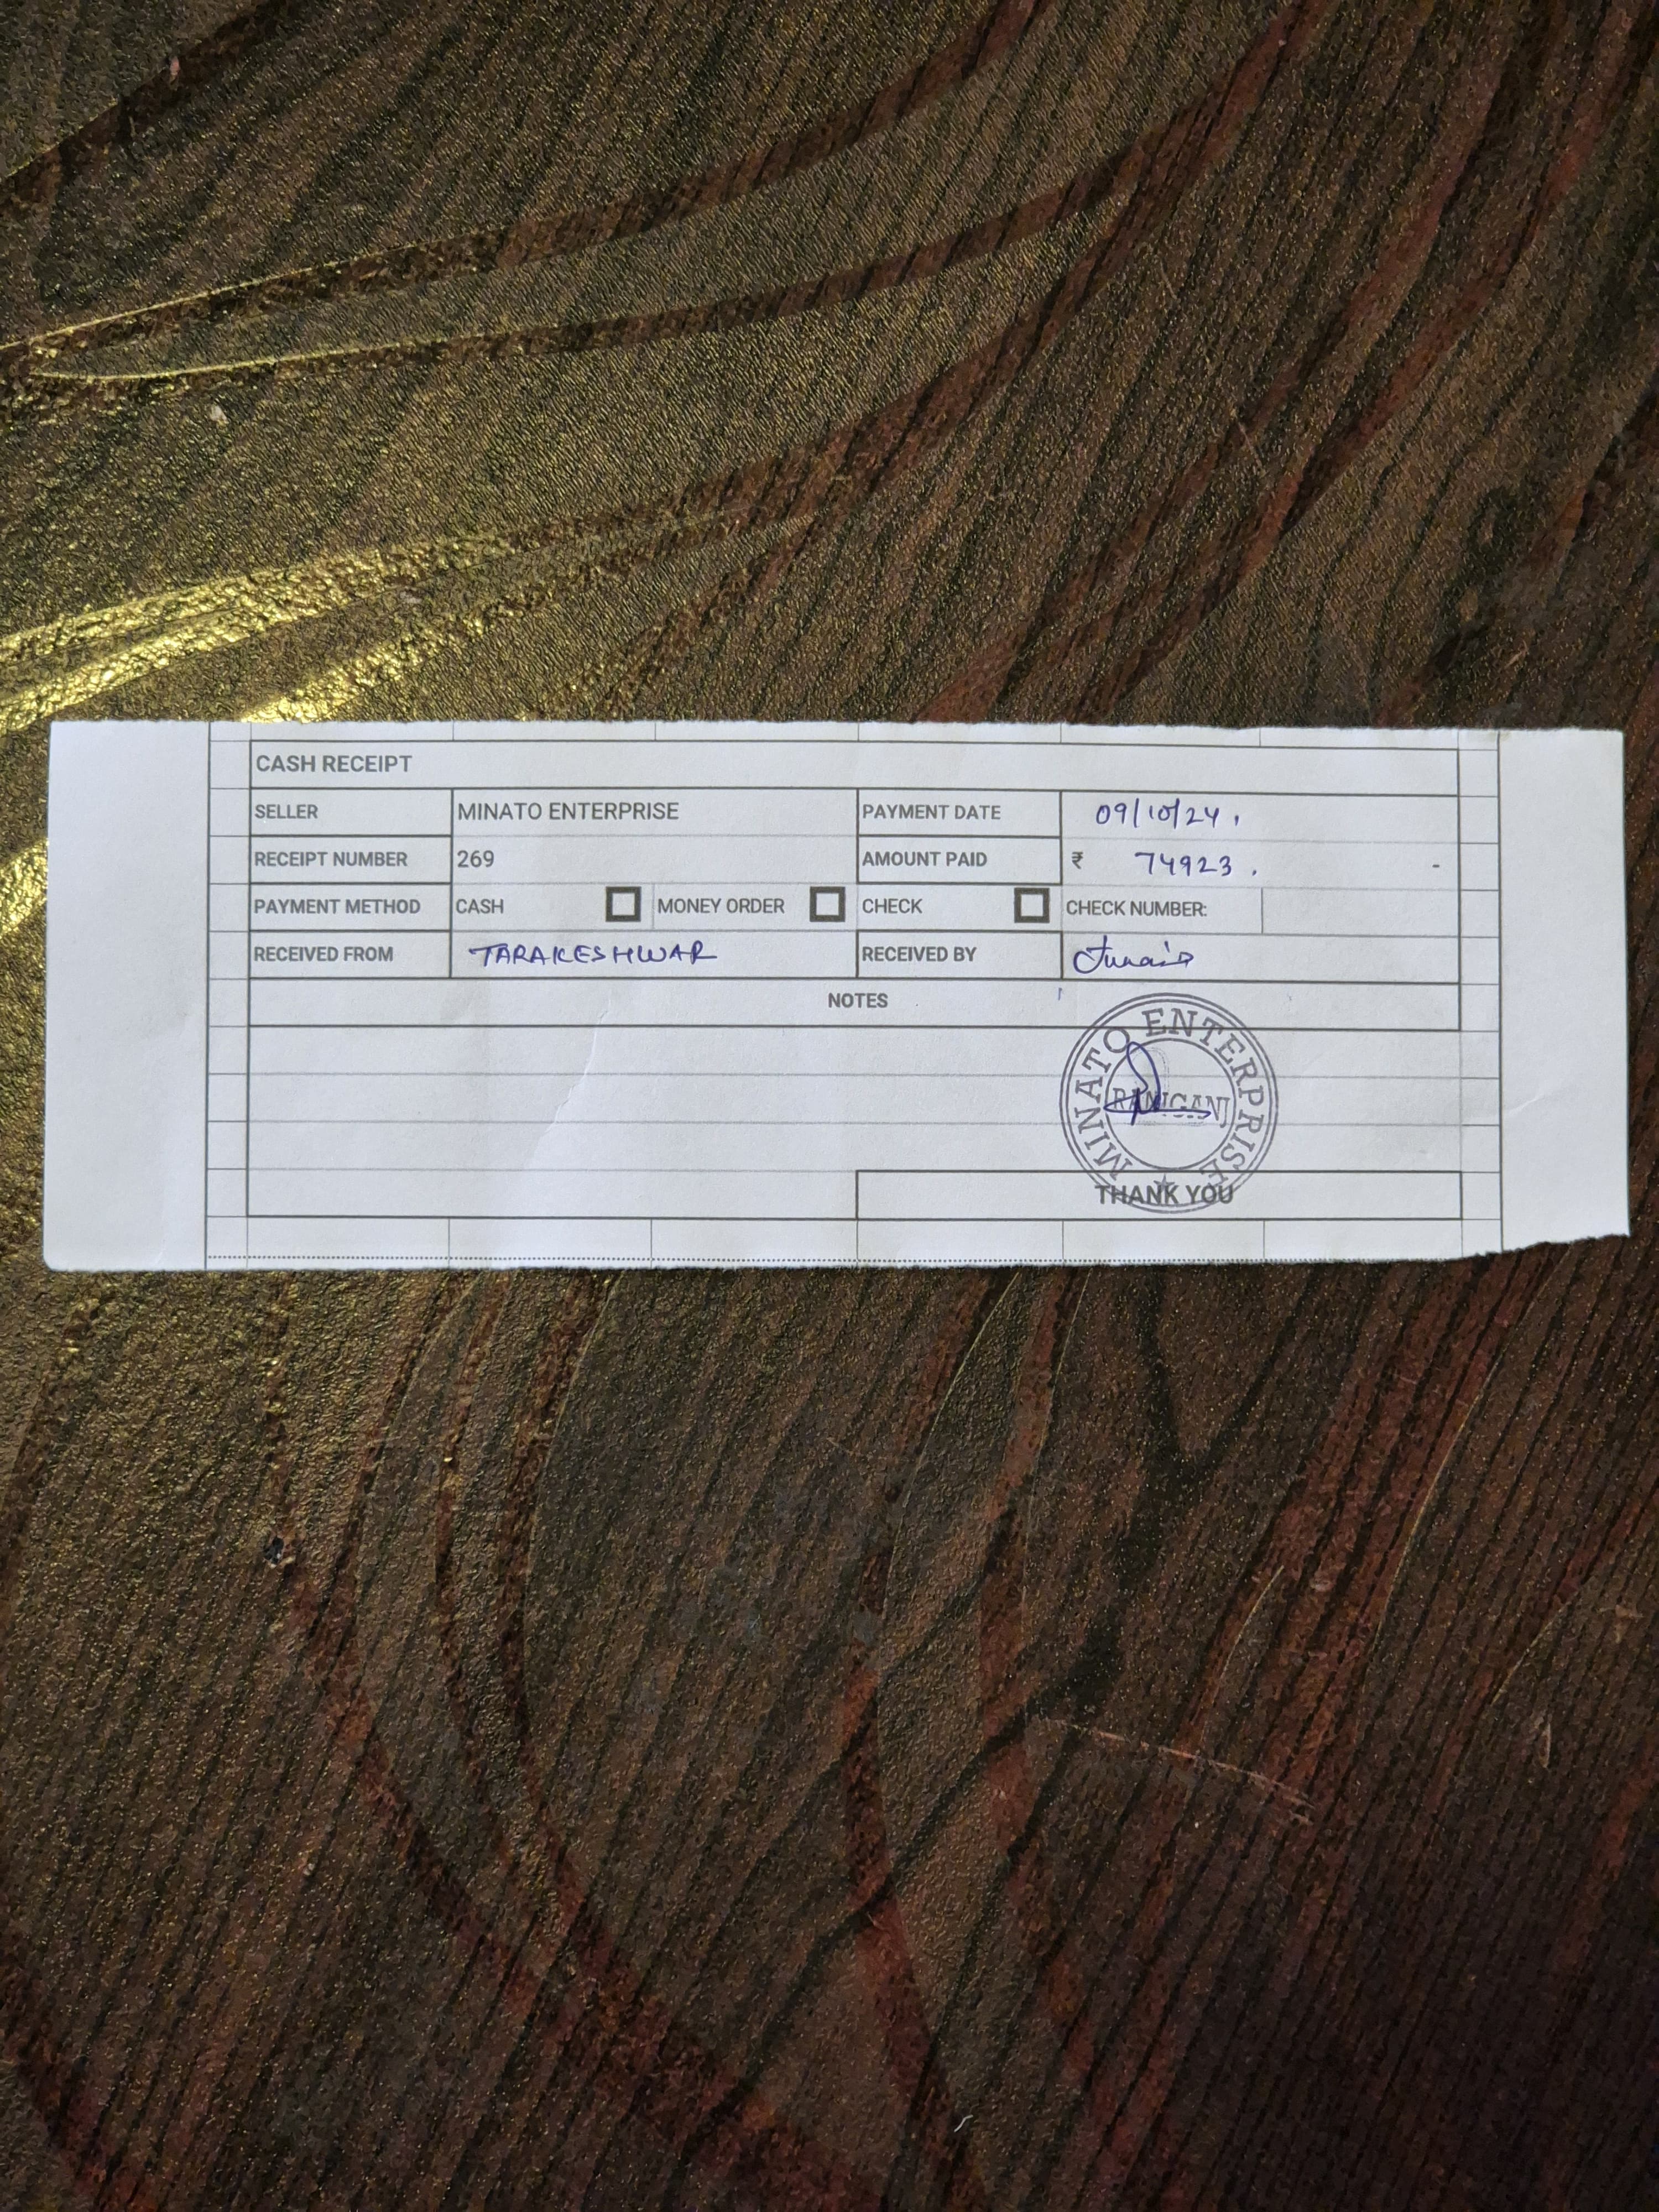 CASH RECEIPT
SELLER MINATO ENTERPRISE PAYMENT DATE 09/10/24.
RECEIPT NUMBER 269 AMOUNT PAID ₹ 74923. -
PAYMENT METHOD CASH MONEY ORDER CHECK CHECK NUMBER:
RECEIVED FROM TARAKESHWAR RECEIVED BY
NOTES
MINATO ENTERPRISE
RANIGANJ
THANK YOU